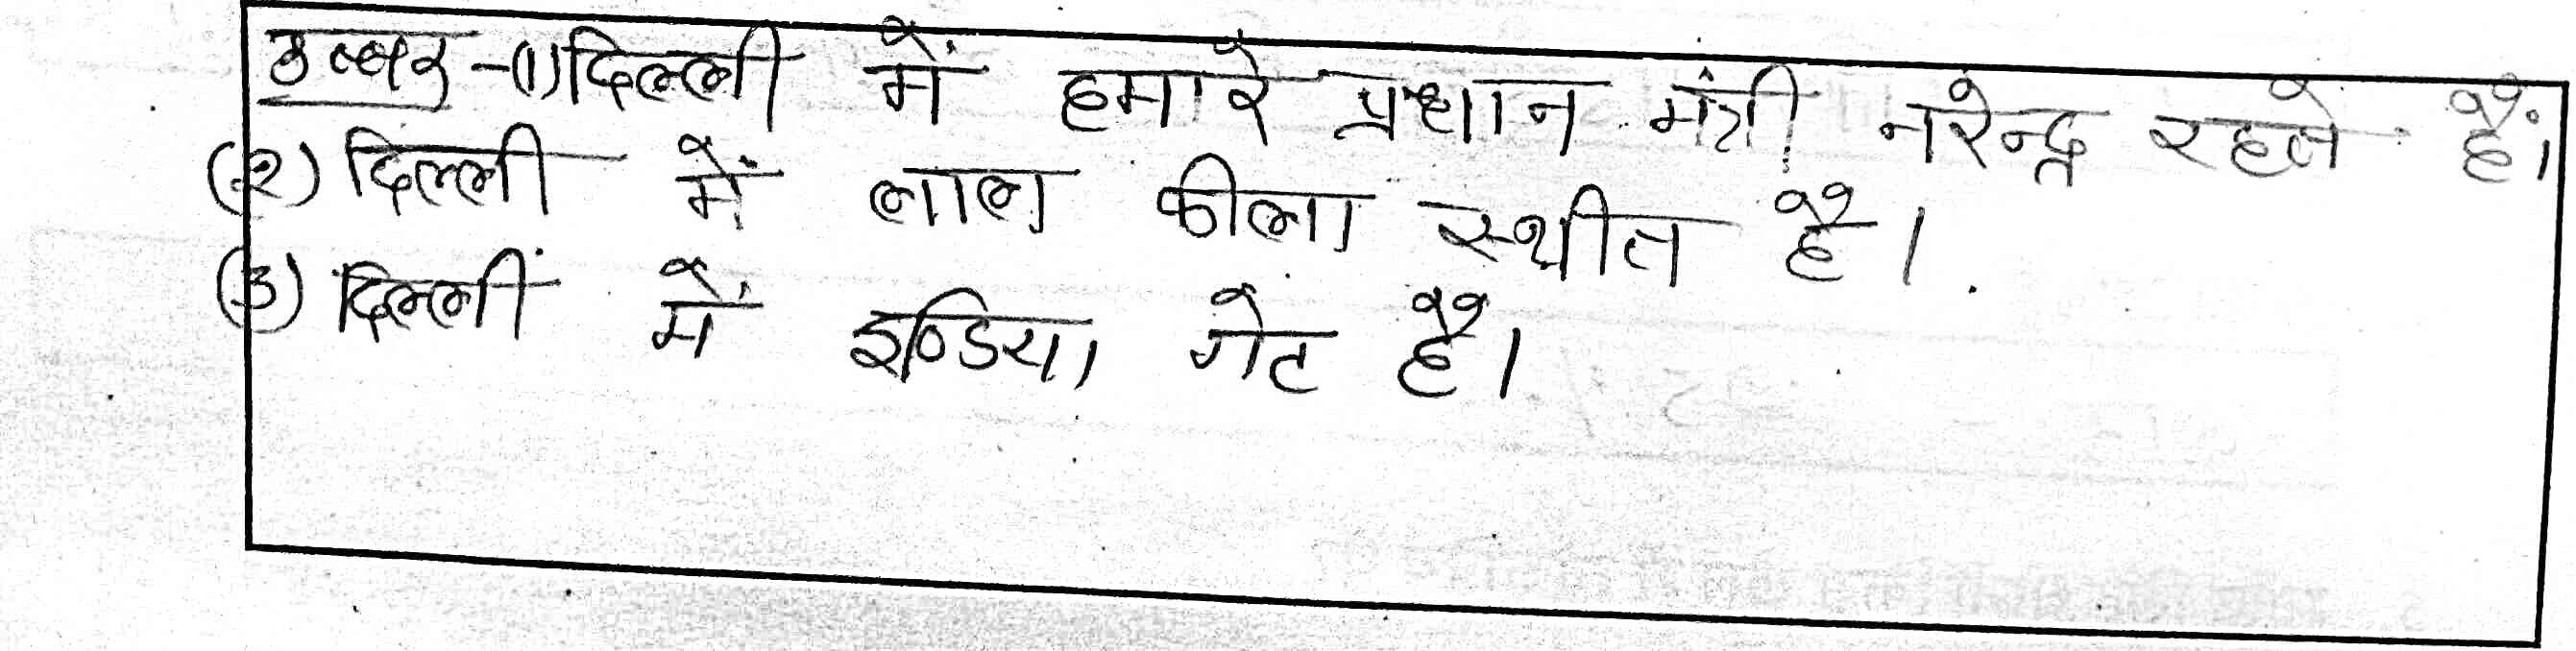 उत्तर -(1) दिल्ली में हमारे प्रधान मंत्री नरेन्द्र रहते हैं।
(२) दिल्ली में लाल कीला स्थीत है।
(3) दिल्लीं में इण्डिया गेट है।